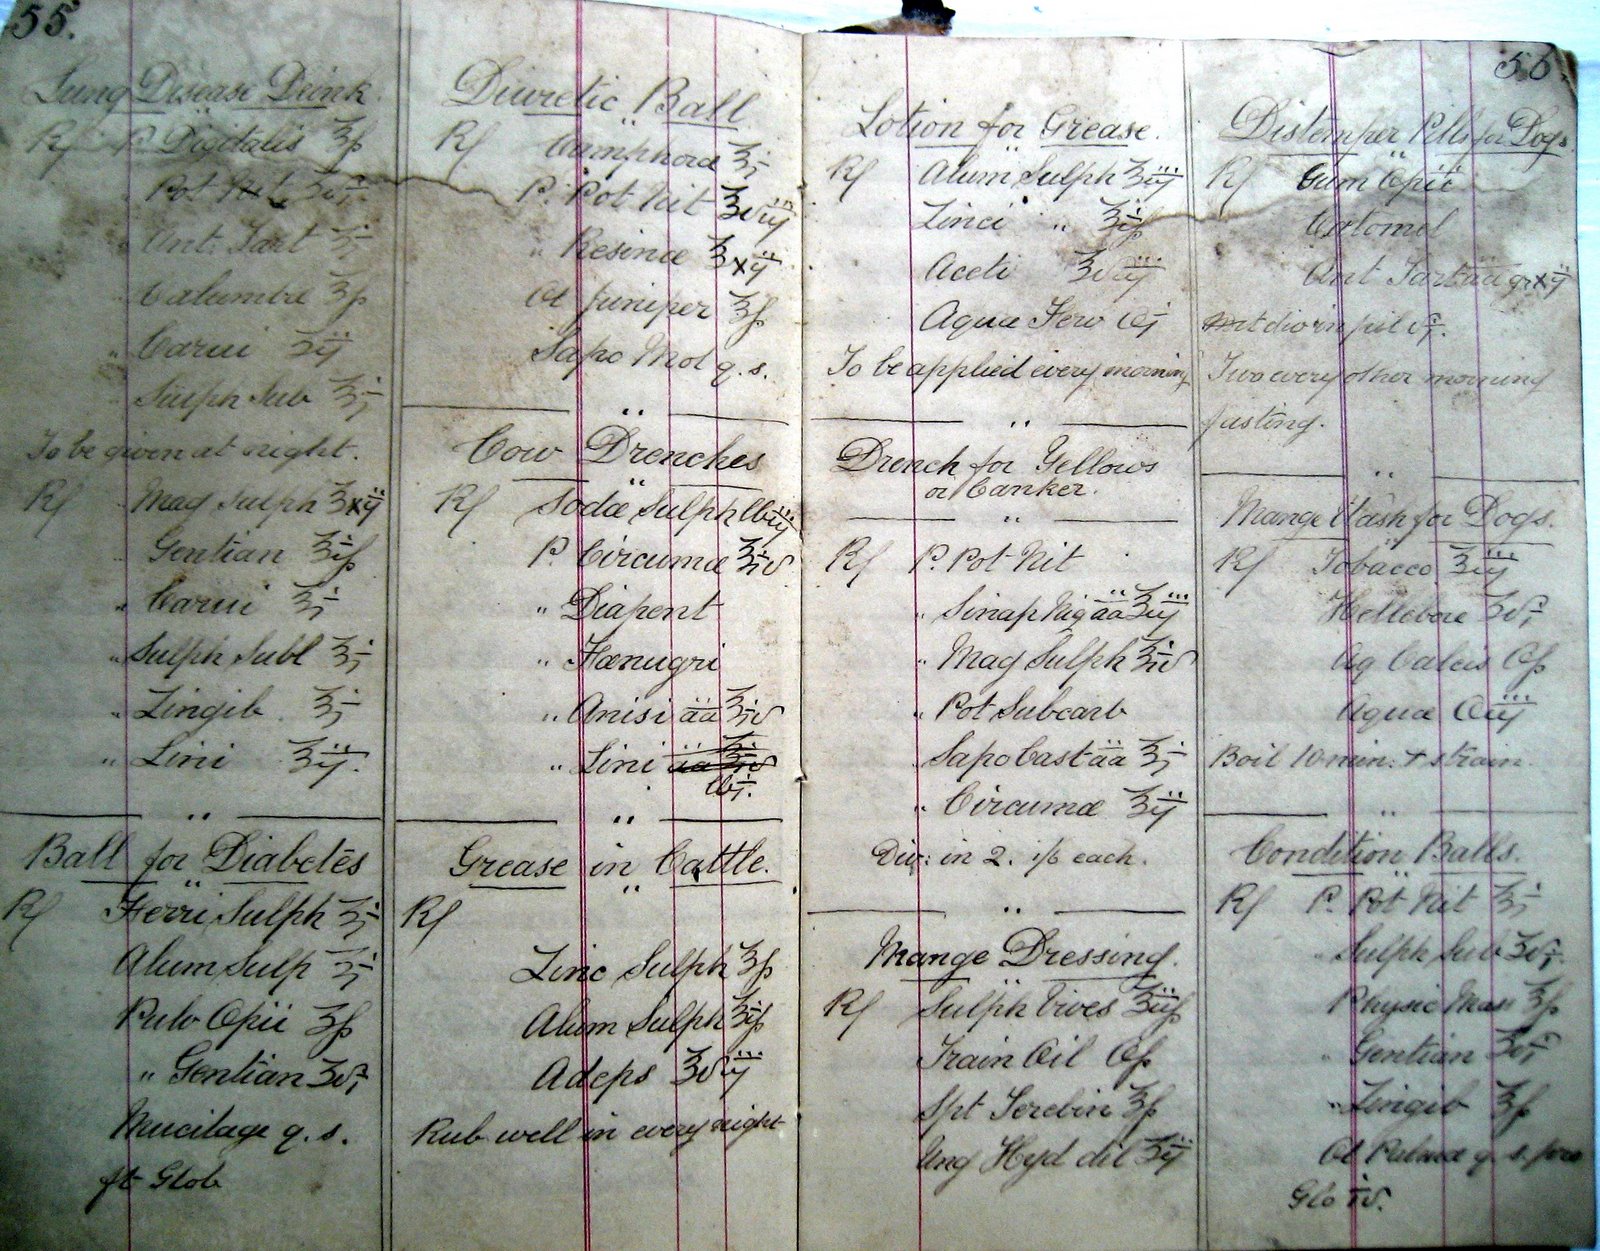 55.
Lung Disease Drink
Rx P. Digitalis ʒſs
Pot Nit ʒvj
" Ant. Tart ʒj
" Calumba ʒſs
" Carui ʒij
" Sulph Sub ʒj
To be given at night.
Rx Mag Sulph ʒxij
" Gentian ʒiſs
" Carui ʒj
" Sulph Subl ʒj
" Zingib ʒj
" Lini ʒij.
"
Ball for Diabetes
Rx Ferri Sulph ʒj
Alum Sulp ʒj
Pulv Opii ʒſs
" Gentian ʒvj
Mucilage q. s.
ft Glob
Diuretic Ball
Rx Camphorae ʒj
P. Pot Nit ʒviij
" Resinae ʒxij
Ol Juniper ʒſs
Sapo Mol q. s.
"
Cow Drenches
Rx Sodae Sulph lbiij
P. Circumae ʒiv
" Diapent
" Fænugri
" Anisi aa ʒiv
" Lini
lbj.
"
Grease in Cattle.
Rx
Zinc Sulph ʒſs
Alum Sulph ʒiſs
Adeps ʒviij
Rub well in every night
56.
Lotion for Grease.
Rx Alum Sulph ʒiij
Zinci " ʒiſs
Aceti ʒviij
Aqua Ferv Oj
To be applied every morning
"
Drench for Yellows
or Canker.
"
Rx P. Pot Nit
" Sinap Nig aa ʒiij
" Mag Sulph ʒiv
" Pot Subcarb
" Sapo Cast aa ʒj
" Circumae ʒij
Div: in 2. 1/6 each.
"
Mange Dressing.
Rx Sulph Vives ʒiiſs
Train Oil Oſs
Spt Terebin ʒſs
Ung Hyd dil ʒij
Distemper Pills for Dogs
Rx Gum Opii
Calomel
Ant Tart aa grxij
Mt div in pil vj.
Two every other morning
fasting.
"
Mange Wash for Dogs.
Rx Tobacco ʒiij
Hellebore ʒvj
Aq Calcis Oſs
Aqua Oiij
Boil 10 min: + strain.
"
Condition Balls.
Rx P. Pot Nit ʒj
" Sulph Sub ʒvj.
Physic Mass ʒſs
" Gentian ʒvj
" Zingib ʒſs
Ol Palmae q. s. pro
Glo iv.